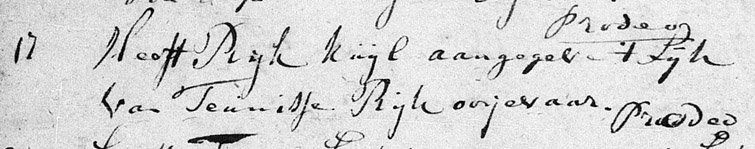 Prodeo
17 Heeft Rijk kuijl aangegeven t Lijk
van Teunisje Rijk ooijevaar. Prodeo